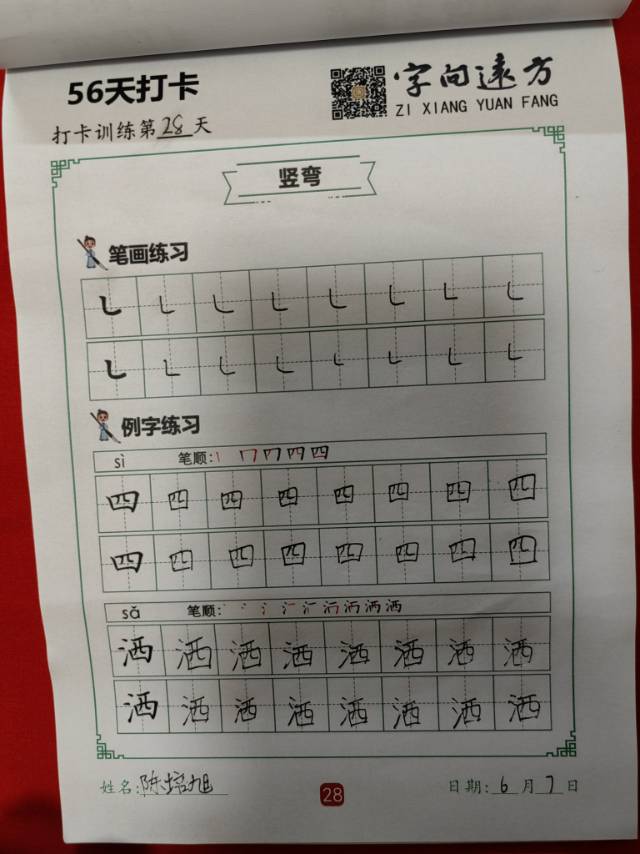 56天打卡
字向远方
ZI XIANG YUAN FANG
打卡训练第28天
竖弯
笔画练习
㇄ ㇄ ㇄ ㇄ ㇄ ㇄ ㇄ ㇄
㇄ ㇄ ㇄ ㇄ ㇄ ㇄ ㇄ ㇄
例字练习
sì 笔顺:
四 四 四 四 四 四 四 四
四 四 四 四 四 四 四 四
sǎ 笔顺:
洒 洒 洒 洒 洒 洒 洒 洒
洒 洒 洒 洒 洒 洒 洒 洒
姓名:陈培旭
28
日期:6月7日